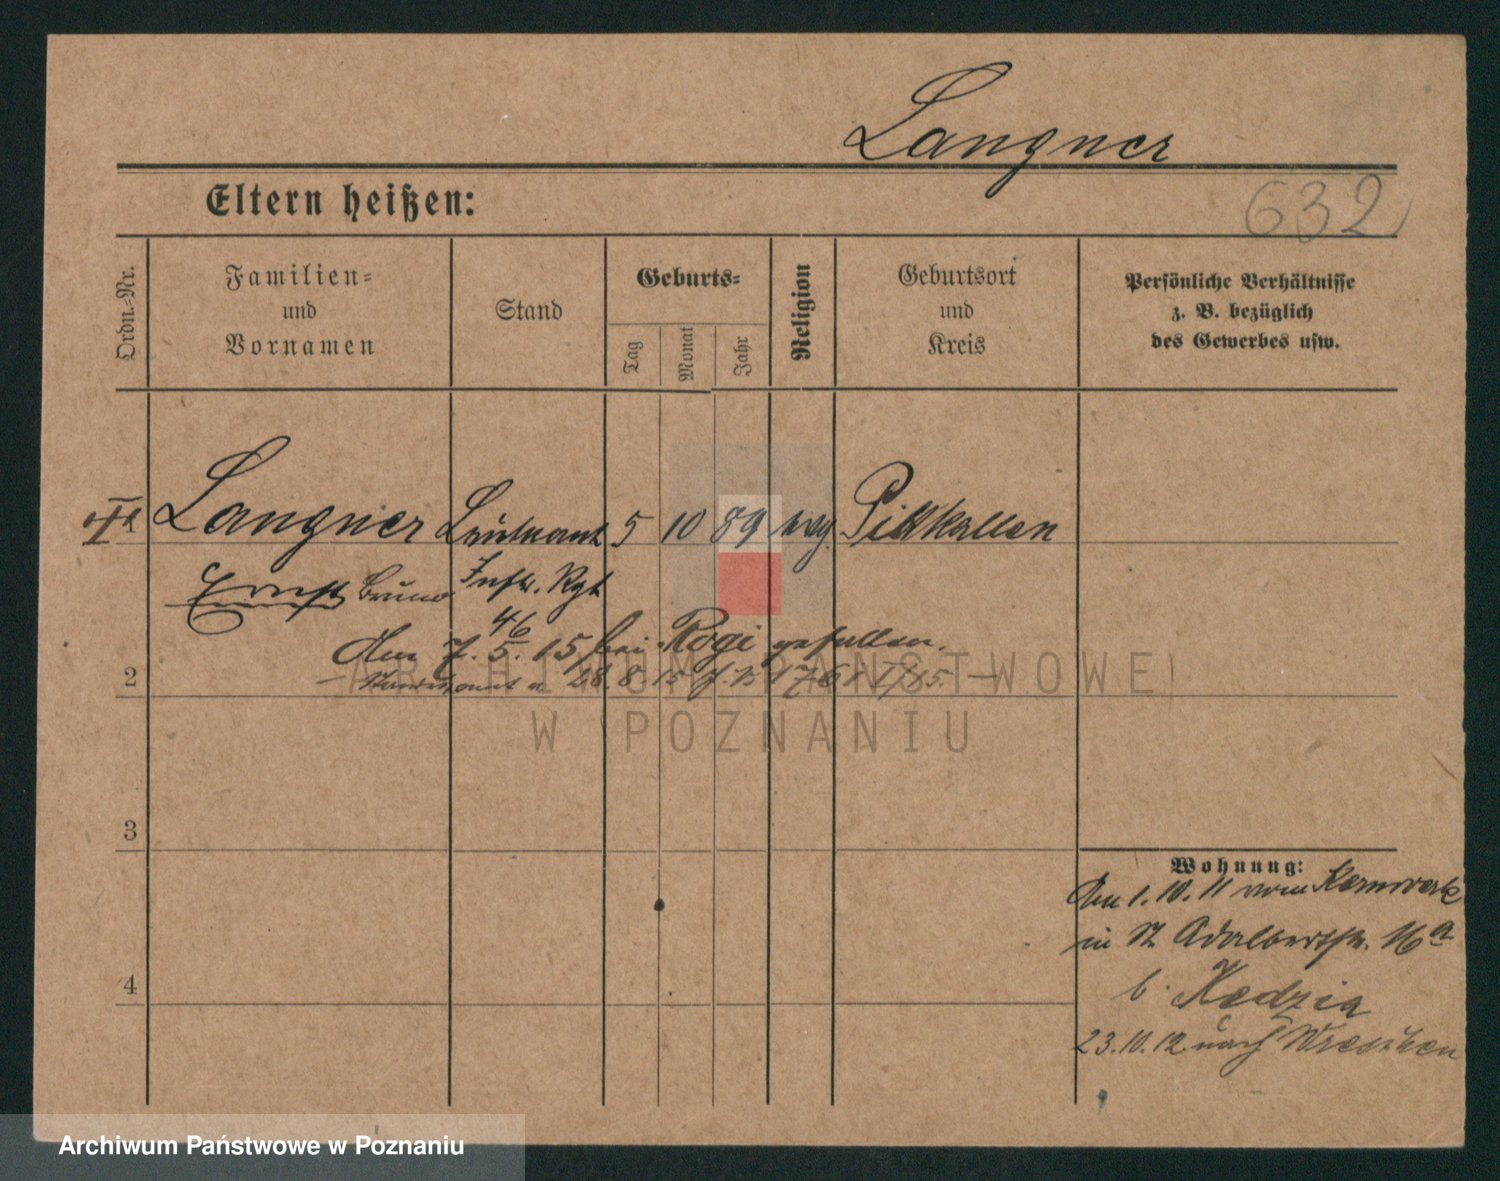 Langner
Eltern heißen:
632
Ordn.-Nr.
Familien-
und
Vornamen
Stand
Geburts-
Tag
Monat
Jahr
Religion
Geburtsort
und
Kreis
Persönliche Verhältnisse
z. B. bezüglich
des Gewerbes usw.
1 Langner Leutnant 5 10 89 evg. Pillkallen
Ernst Bruno Inftr. Rgt
46
Am 7. 5. 15 bei Rogi gefallen.
2
28. 8. 15
ARCHIWUM PAŃSTWOWE
W POZNANIU
3
Wohnung:
Am 1. 10. 11 vom Kernwerk
in St Adalbertstr. 16a
4
b. Kedzia
23. 10. 12 nach Wreschen
Archiwum Państwowe w Poznaniu